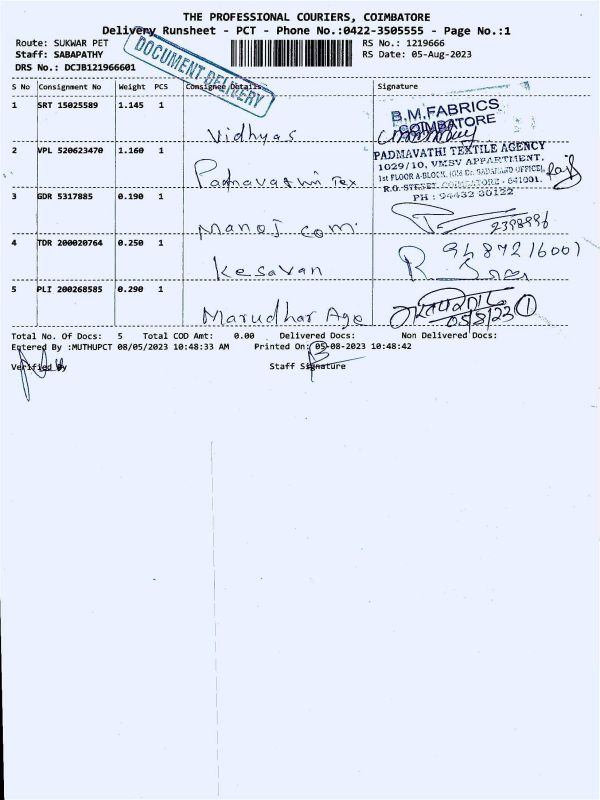 THE PROFESSIONAL COURIERS, COIMBATORE
Delivery Runsheet - PCT - Phone No.:0422-3505555 - Page No.:1
Route: SUKWAR PET RS No.: 1219666
Staff: SABAPATHY RS Date: 05-Aug-2023
DRS No.: DCJB121966601
DOCUMENT DELIVERY
S No Consignment No Weight PCS Consignee Details Signature
1 SRT 15025589 1.145 1 Vidhyas
B.M.FABRICS
COIMBATORE
2 VPL 520623470 1.160 1 Padmavathi Tex
PADMAVATHI TEXTILE AGENCY
1029/10, VMBV APPARTMENT,
1st FLOOR A-BLOCK,
R.G. STREET, COIMBATORE - 641001.
PH : 94432 30122
3 GDR 5317885 0.190 1 Manoj com. 2398996
4 TDR 200020764 0.250 1 Kesavan 9487216001
5 PLI 200268585 0.290 1 Marudhar Age 05/8/23 1
Total No. Of Docs: 5 Total COD Amt: 0.00 Delivered Docs: Non Delivered Docs:
Entered By :MUTHUPCT 08/05/2023 10:48:33 AM Printed On: 05-08-2023 10:48:42
Verified By Staff Signature